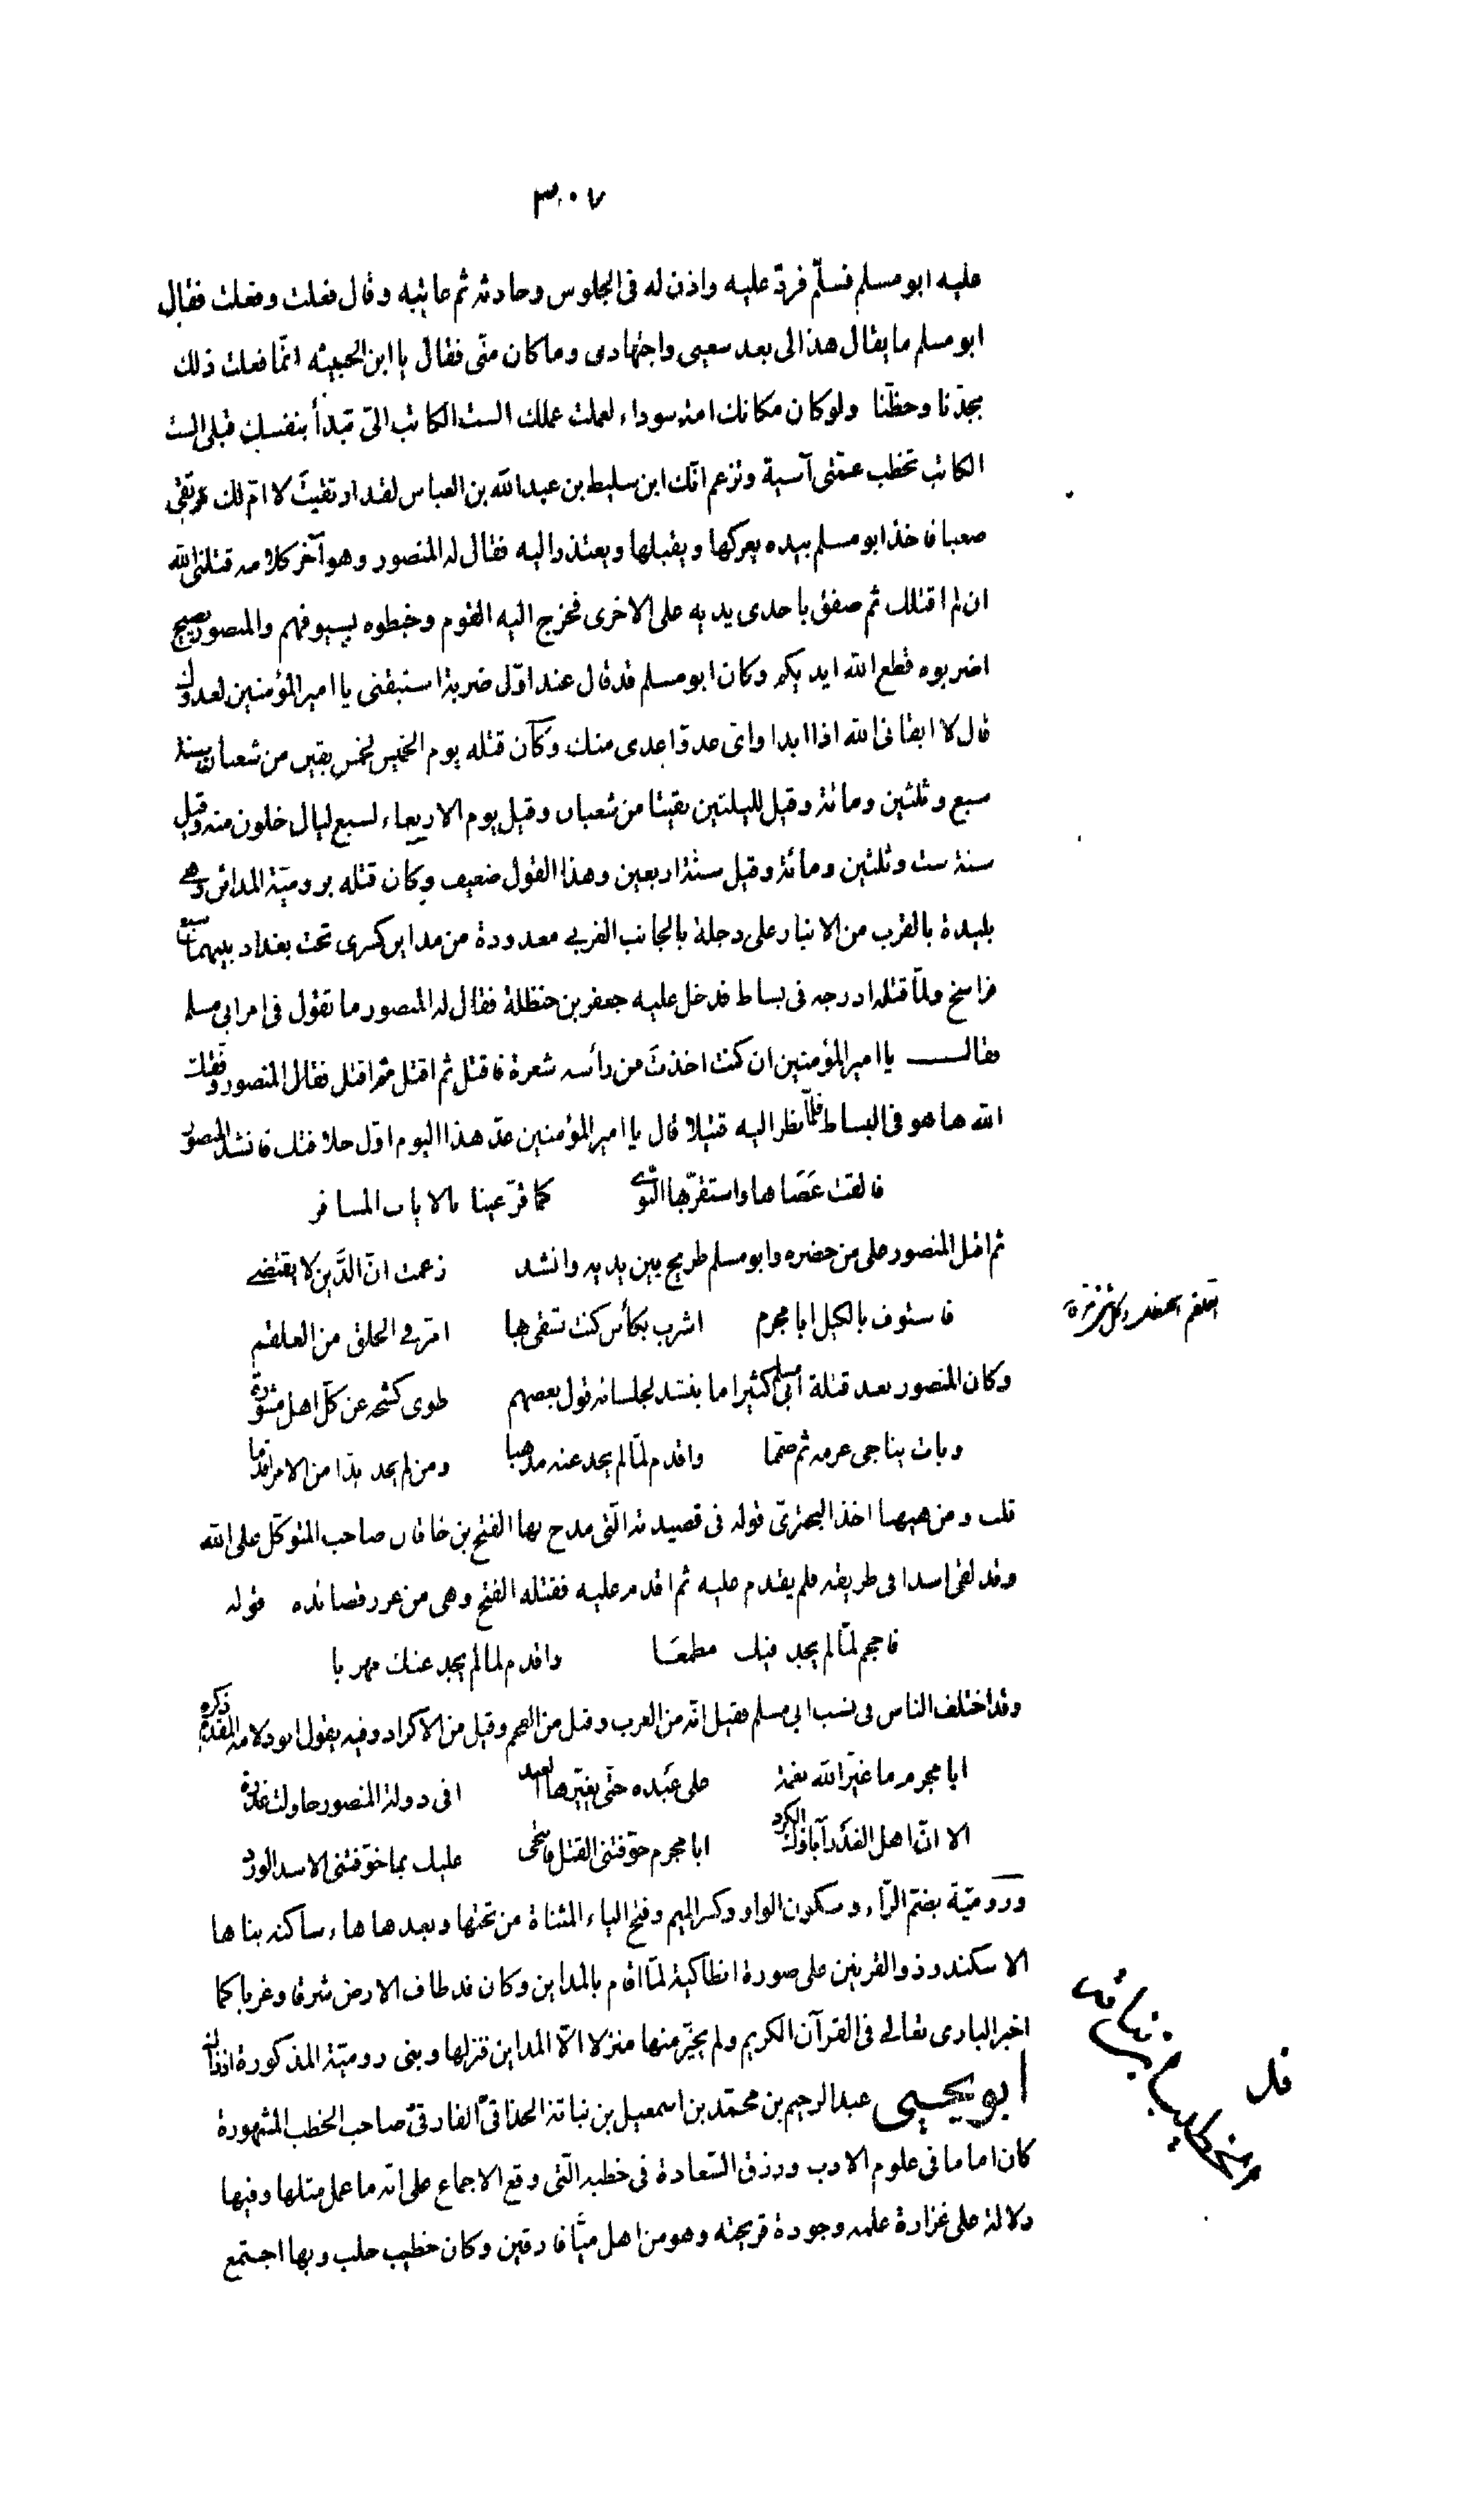 ٣٠٧
عليه ابو مسلم فسلّم فردّ عليه واذن له فى الجلوس وحادثه ثم عاتبه وقال فعلت وفعلت فقال
ابو مسلم ما يقال هذا لى بعد سعيى واجتهادى وما كان منّى فقال يا ابن الخبيثه انّما فعلت ذلك
بجدّنا وحظّنا ولو كان مكانك امة سوداء لعملت عملك الست الكاتب الىّ تبدأ بنفسك قبلى الست
الكاتب تخطب عمّتى آسية وتزعم انّك ابن سليط بن عبد الله بن العباس لقد ارتقيتَ لا امّ لك مرتقى
صعبا فاخذ ابو مسلم بيده يعركها ويقبلها ويعتذر اليه فقال له المنصور وهو آخر كلامه قتلنى الله
ان لم اقتلك ثم صفق باحدى يديه على الاخرى فخرج اليه القوم وخبطوه بسيوفهم والمنصور يصيح
اضربوه قطع الله ايديكم وكان ابو مسلم قد قال عند اوّل ضربة استبقنى يا امير المؤمنين لعدوّك
قال لا ابقانى الله اذا ابدا واىّ عدوّ اعدى منك وكان قتله يوم الخميس لخمس بقين من شعبان سنة
سبع وثلثين ومائة وقيل لليلتين بقيتا من شعبان وقيل يوم الاربعاء لسبع ليال خلون منه وقيل
سنة ست وثلثين ومائة وقيل سنة اربعين وهذا القول ضعيف وكان قتله برومية المدائن وهى
بليدة بالقرب من الانبار على دجلة بالجانب الغربى معدودة من مداين كسرى تحت بغداد بينهما سبع
فراسخ ولمّا قتله ادرجه فى بساط فدخل عليه جعفر بن حنظلة فقال له المنصور ما تقول فى امر ابى مسلم
فقال يا امير المؤمنين ان كنت اخذتَ من رأسه شعرة فاقتل ثم اقتل ثم اقتل فقال المنصور وفّقك
الله ها هو فى البساط فلمّا نظر اليه قتيلا قال يا امير المؤمنين عدّ هذا اليوم اوّل خلافتك فانشد المنصور
فالقت عَصَاها واستقرّ بها النّوى كما قرّ عينا بالاياب المسافر
ثم اقبل المنصور على من حضره وابو مسلم طريح بين يديه وانشد زعمت انّ الدَّين لا يقتضى
فاستوف بالكيل ابا مجرم اشرب بكأس كنت تسقى بها امرّ فى الحلق من العلقم
وكان المنصور بعد قتلة ابى مسلم كثيرا ما ينشد لجلسائه قول بعضهم طوى كشحه عن كلّ اهل مشورة
وبات يناجى عزمه ثم صمّما واقدم لمّا لم يجد عنه مذهبا ومن لم يجد بدّا من الامر اقدما
قلت ومن هيهنا اخذ البحترىّ قوله فى قصيدته الّتى مدح بها الفتح بن خاقان صاحب المتوكّل على الله
وقد لقى اسدا فى طريقه فلم يقدم عليه ثم اقدم عليه فقتله الفتح وهى من غرر قصائده قوله
فاحجم لمّا لم يجد فيك مطمعَا واقدم لما لم يجد عنك مهربا
وقد اختلف الناس فى نسب ابى مسلم فقيل انّه من العرب وقيل من العجم وقيل من الاكراد وفيه يقول ابو دلامة المقدّم ذكره
ابا مجرم ما غيّر الله نعمة على عَبده حتّى يغيّرها العبد افى دولة المنصور حاولت غدرة
الا انّ اهل الغدر آباؤك الكرد ابا مجرم خوّفتنى القتل فانتحى عليك بما خوّفتنى الاسد الورد
ورُوميّة بضمّ الرّاء وسكون الواو وكسر الميم وفتح الياء المثناة من تحتها وبعدها هاء ساكنه بناها
الاسكندر ذو القرنين على صورة انطاكية لمّا اقام بالمداين وكان قد طاف الارض شرقا وغربا كما
اخبر البارى تعالى فى القرآن الكريم ولم يختر منها منزلا الّا المداين فنزلها وبنى رومية المذكورة اذ ذاك
ابو يحيى عبد الرحيم بن محمّد بن اسمعيل بن نباتة الحذاقىّ الفارقىّ صاحب الخطب المشهورة
كان اماما فى علوم الادب ورزق السّعادة فى خطبه الّتى وقع الاجماع على انّه ما عمل مثلها وفيها
دلالة على غزارة علمه وجودة قريحته وهو من اهل ميّافارقين وكان خطيب حلب وبها اجتمع
العلقم الحنظل وكل شئ مرّ
الخطيب بن نباته